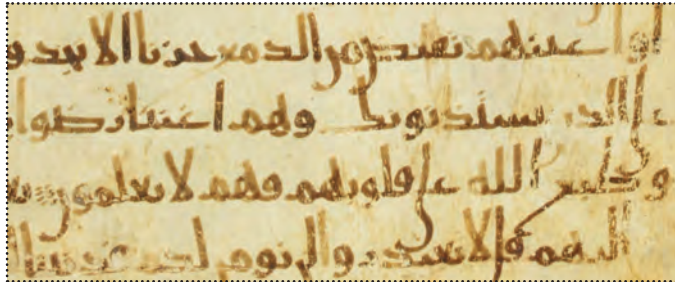 لوا و اعينهم تفيض من الدمع حزنا الا يجدو
على الذين يستذنونك وهم اغنيا رضوا
وطبع الله على قلوبهم فهم لا يعلمون
اليهم قل لا تعتذروا لن نومن لكم قد نبا